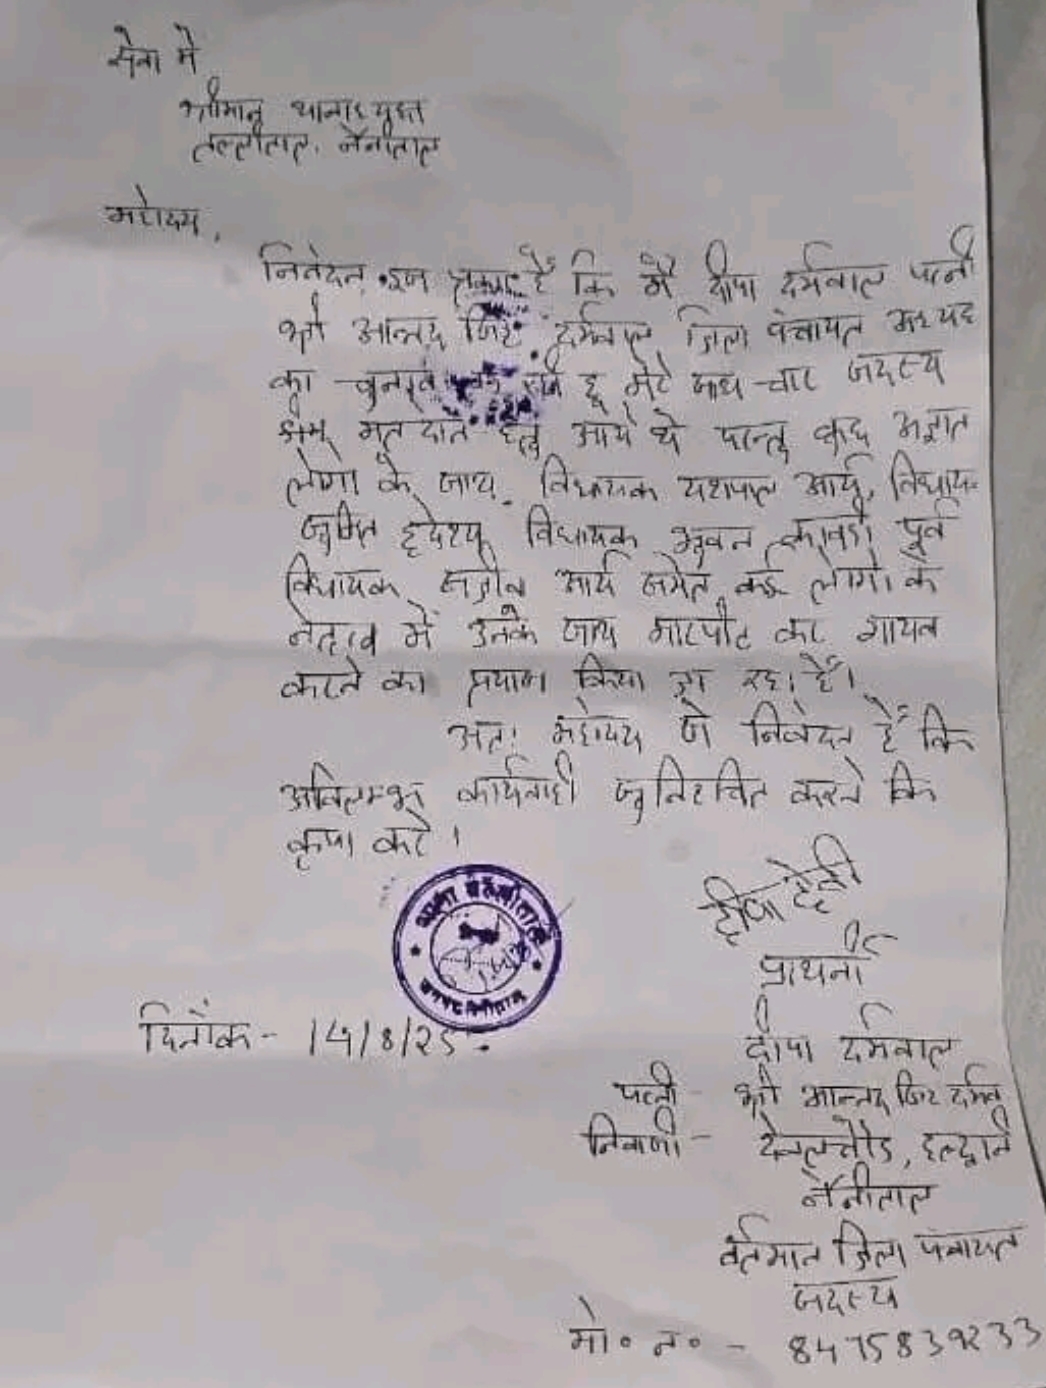 सेवा में
श्रीमान थानाध्यक्ष
तल्लीताल, नैनीताल
महोदय,
निवेदन इस प्रकार है कि मैं दीपा दर्मवाल पत्नी
श्री आनन्द सिंह दर्मवाल जिला पंचायत अध्यक्ष
का चुनाव लड़ रही हूं मेरे साथ चार सदस्य
मतदान हेतु आये थे परन्तु कुछ अज्ञात
लोगो के साथ विधायक यशपाल आर्य, विधायक
सुमित हृदेश्य विधायक भुवन कापडी पूर्व
विधायक संजीव आर्य समेत कई लोगो के
नेतृत्व में उनके साथ मारपीट कर गायब
करने का प्रयास किया जा रहा है।
अतः महोदय से निवेदन है कि
अविलम्भ कार्यवाही सुनिश्चित करने कि
कृपा करे।
दीपा देवी
थाना तल्लीताल
जनपद नैनीताल
प्राथनी
दिनांक - 14/8/25
दीपा दर्मवाल
पत्नी - श्री आनन्द सिंह दर्मवाल
निवासी - देवलचौड, हल्द्वानी
नैनीताल
वर्तमान जिला पंचायत
सदस्य
मो० न० - 8475839233